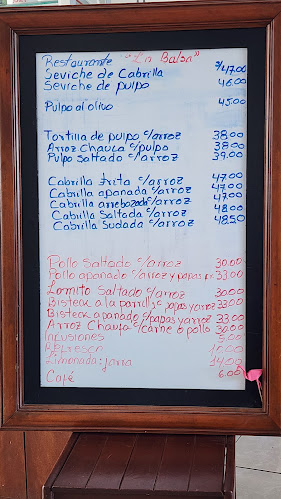 Restaurante "La Balsa"
Seviche de Cabrilla S/47.00
Seviche de pulpo 46.00
Pulpo al olivo 45.00
Tortilla de pulpo c/arroz 38.00
Arroz Chaufa c/pulpo 38.00
Pulpo saltado c/arroz 39.00
Cabrilla frita c/arroz 47.00
Cabrilla apanada c/arroz 47.00
Cabrilla arrebozada c/arroz 47.00
Cabrilla Saltada c/arroz 48.00
Cabrilla Sudada c/arroz 48.50
Pollo Saltado c/arroz 30.00
Pollo apanado c/arroz y papas 33.00
Lomito Saltado c/arroz 30.00
Bisteck a la parrilla c/papas y arroz 33.00
Bisteck apanado c/papas y arroz 33.00
Arroz Chaufa c/carne o pollo 30.00
Infusiones 5.00
Refresco
Limonada: jarra 14.00
Café 6.00